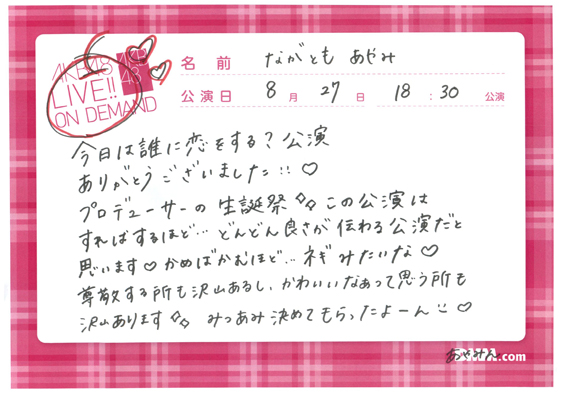 AKB48
LIVE!!
ON DEMAND
AKB
48
名前 ながとも あやみ
公演日 8月 27日 18:30 公演
今日は誰に恋をする?公演
ありがとうございました!! ♡
プロデューサーの 生誕祭 この公演は
すればするほど… どんどん良さが 伝わる公演だと
思います♡ かめばかむほど… ネギみたいな♡
尊敬する所も沢山あるし、かわいいなあって思う所も
沢山あります みつあみ 決めてもらったよーん ♡
あやみん.com